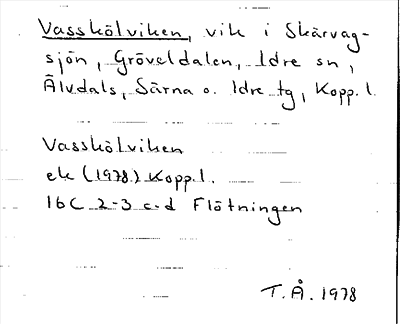 Vasskölviken, vik i Skärvag-
sjön, Gröveldalen, Idre sn,
Älvdals, Särna o. Idre tg, Kopp. l.
Vasskölviken
ek (1978) Kopp. l.
16C 2-3 c-d Flötningen
T.Å. 1978